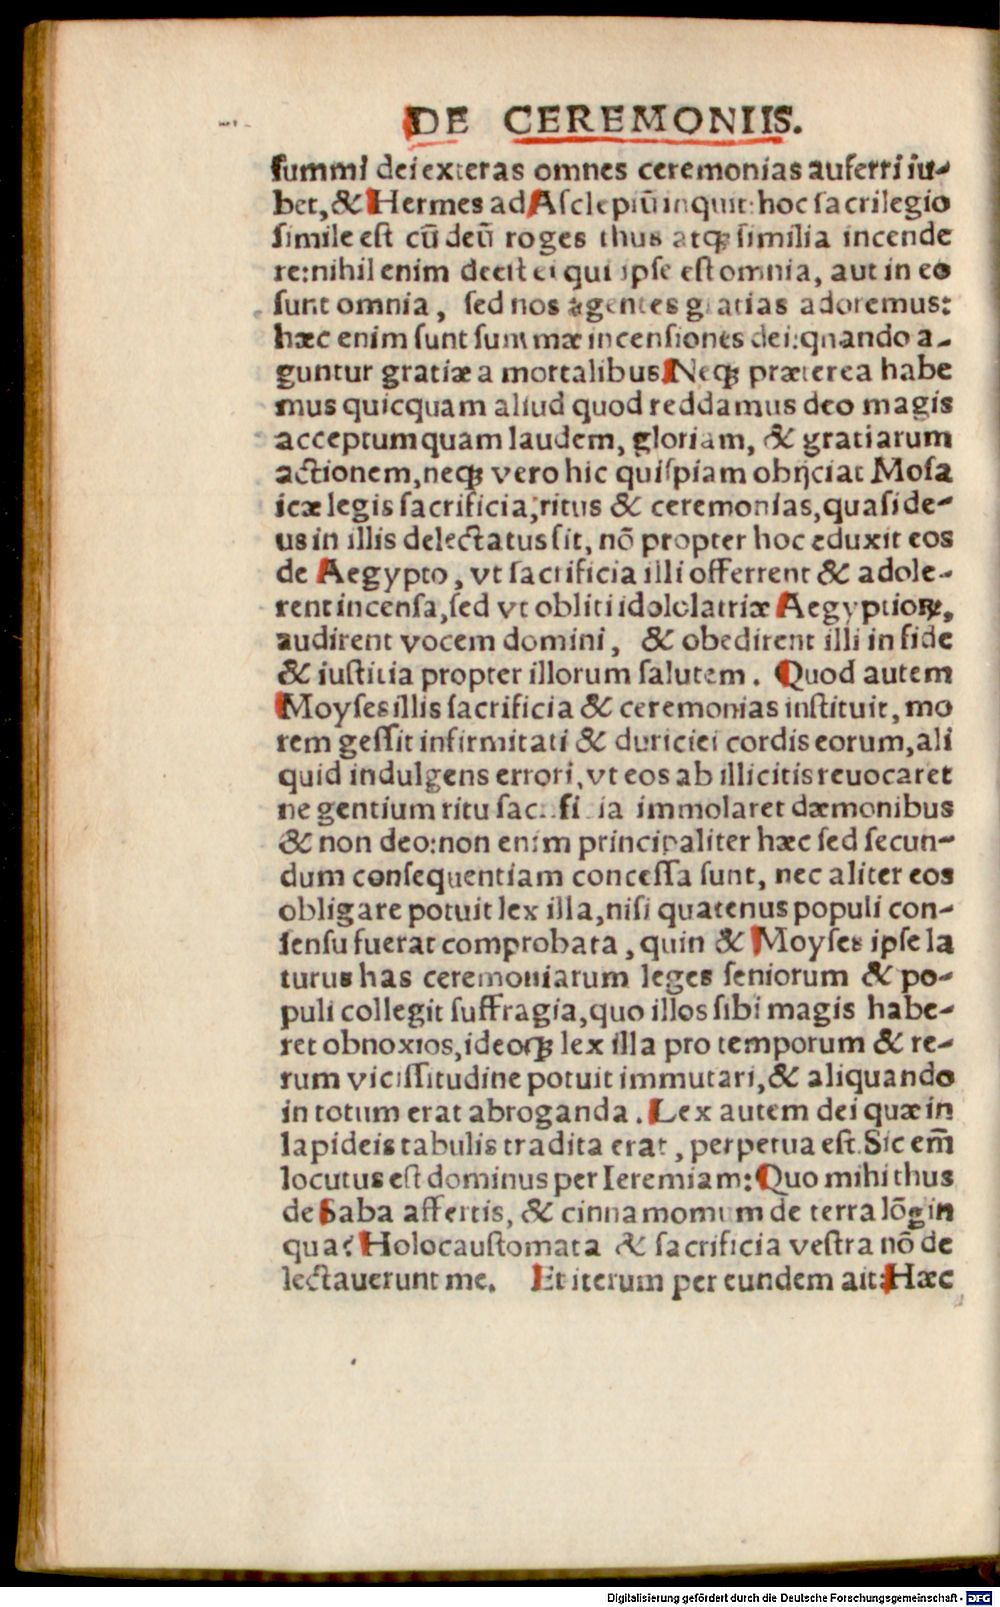 DE CEREMONIIS.
ſummi dei exteras omnes ceremonias auferri iu-
bet, & Hermes ad Aſclepiū inquit: hoc ſacrilegio
ſimile eſt cū deū roges thus atqꝫ ſimilia incende
re: nihil enim deeſt ei qui ipſe eſt omnia, aut in eo
ſunt omnia, ſed nos agentes gratias adoremus:
hæc enim ſunt ſummæ incenſiones dei: quando a-
guntur gratiæ a mortalibus. Neqꝫ præterea habe
mus quicquam aliud quod reddamus deo magis
acceptum quam laudem, gloriam, & gratiarum
actionem, neqꝫ vero hic quiſpiam obijciat Moſa
icæ legis ſacrificia, ritus & ceremonias, quaſi de-
us in illis delectatus ſit, nō propter hoc eduxit eos
de Aegypto, vt ſacrificia illi offerrent & adole-
rent incenſa, ſed vt obliti idololatriæ Aegyptioꝝ,
audirent vocem domini, & obedirent illi in fide
& iuſtitia propter illorum ſalutem. Quod autem
Moyſes illis ſacrificia & ceremonias inſtituit, mo
rem geſſit infirmitati & duriciei cordis eorum, ali
quid indulgens errori, vt eos ab illicitis reuocaret
ne gentium ritu ſacrificia immolaret dæmonibus
& non deo: non enim principaliter hæc ſed ſecun-
dum conſequentiam conceſſa ſunt, nec aliter eos
obligare potuit lex illa, niſi quatenus populi con-
ſenſu fuerat comprobata, quin & Moyſes ipſe la
turus has ceremoniarum leges ſeniorum & po-
puli collegit ſuffragia, quo illos ſibi magis habe-
ret obnoxios, ideoqꝫ lex illa pro temporum & re-
rum viciſſitudine potuit immutari, & aliquando
in totum erat abroganda. Lex autem dei quæ in
lapideis tabulis tradita erat, perpetua eſt. Sic em̄
locutus eſt dominus per Ieremiam: Quo mihi thus
de Saba affertis, & cinnamomum de terra lōgin
qua? Holocauſtomata & ſacrificia veſtra nō de
lectauerunt me. Et iterum per eundem ait: Hæc
Digitalisierung gefördert durch die Deutsche Forschungsgemeinschaft - DFG